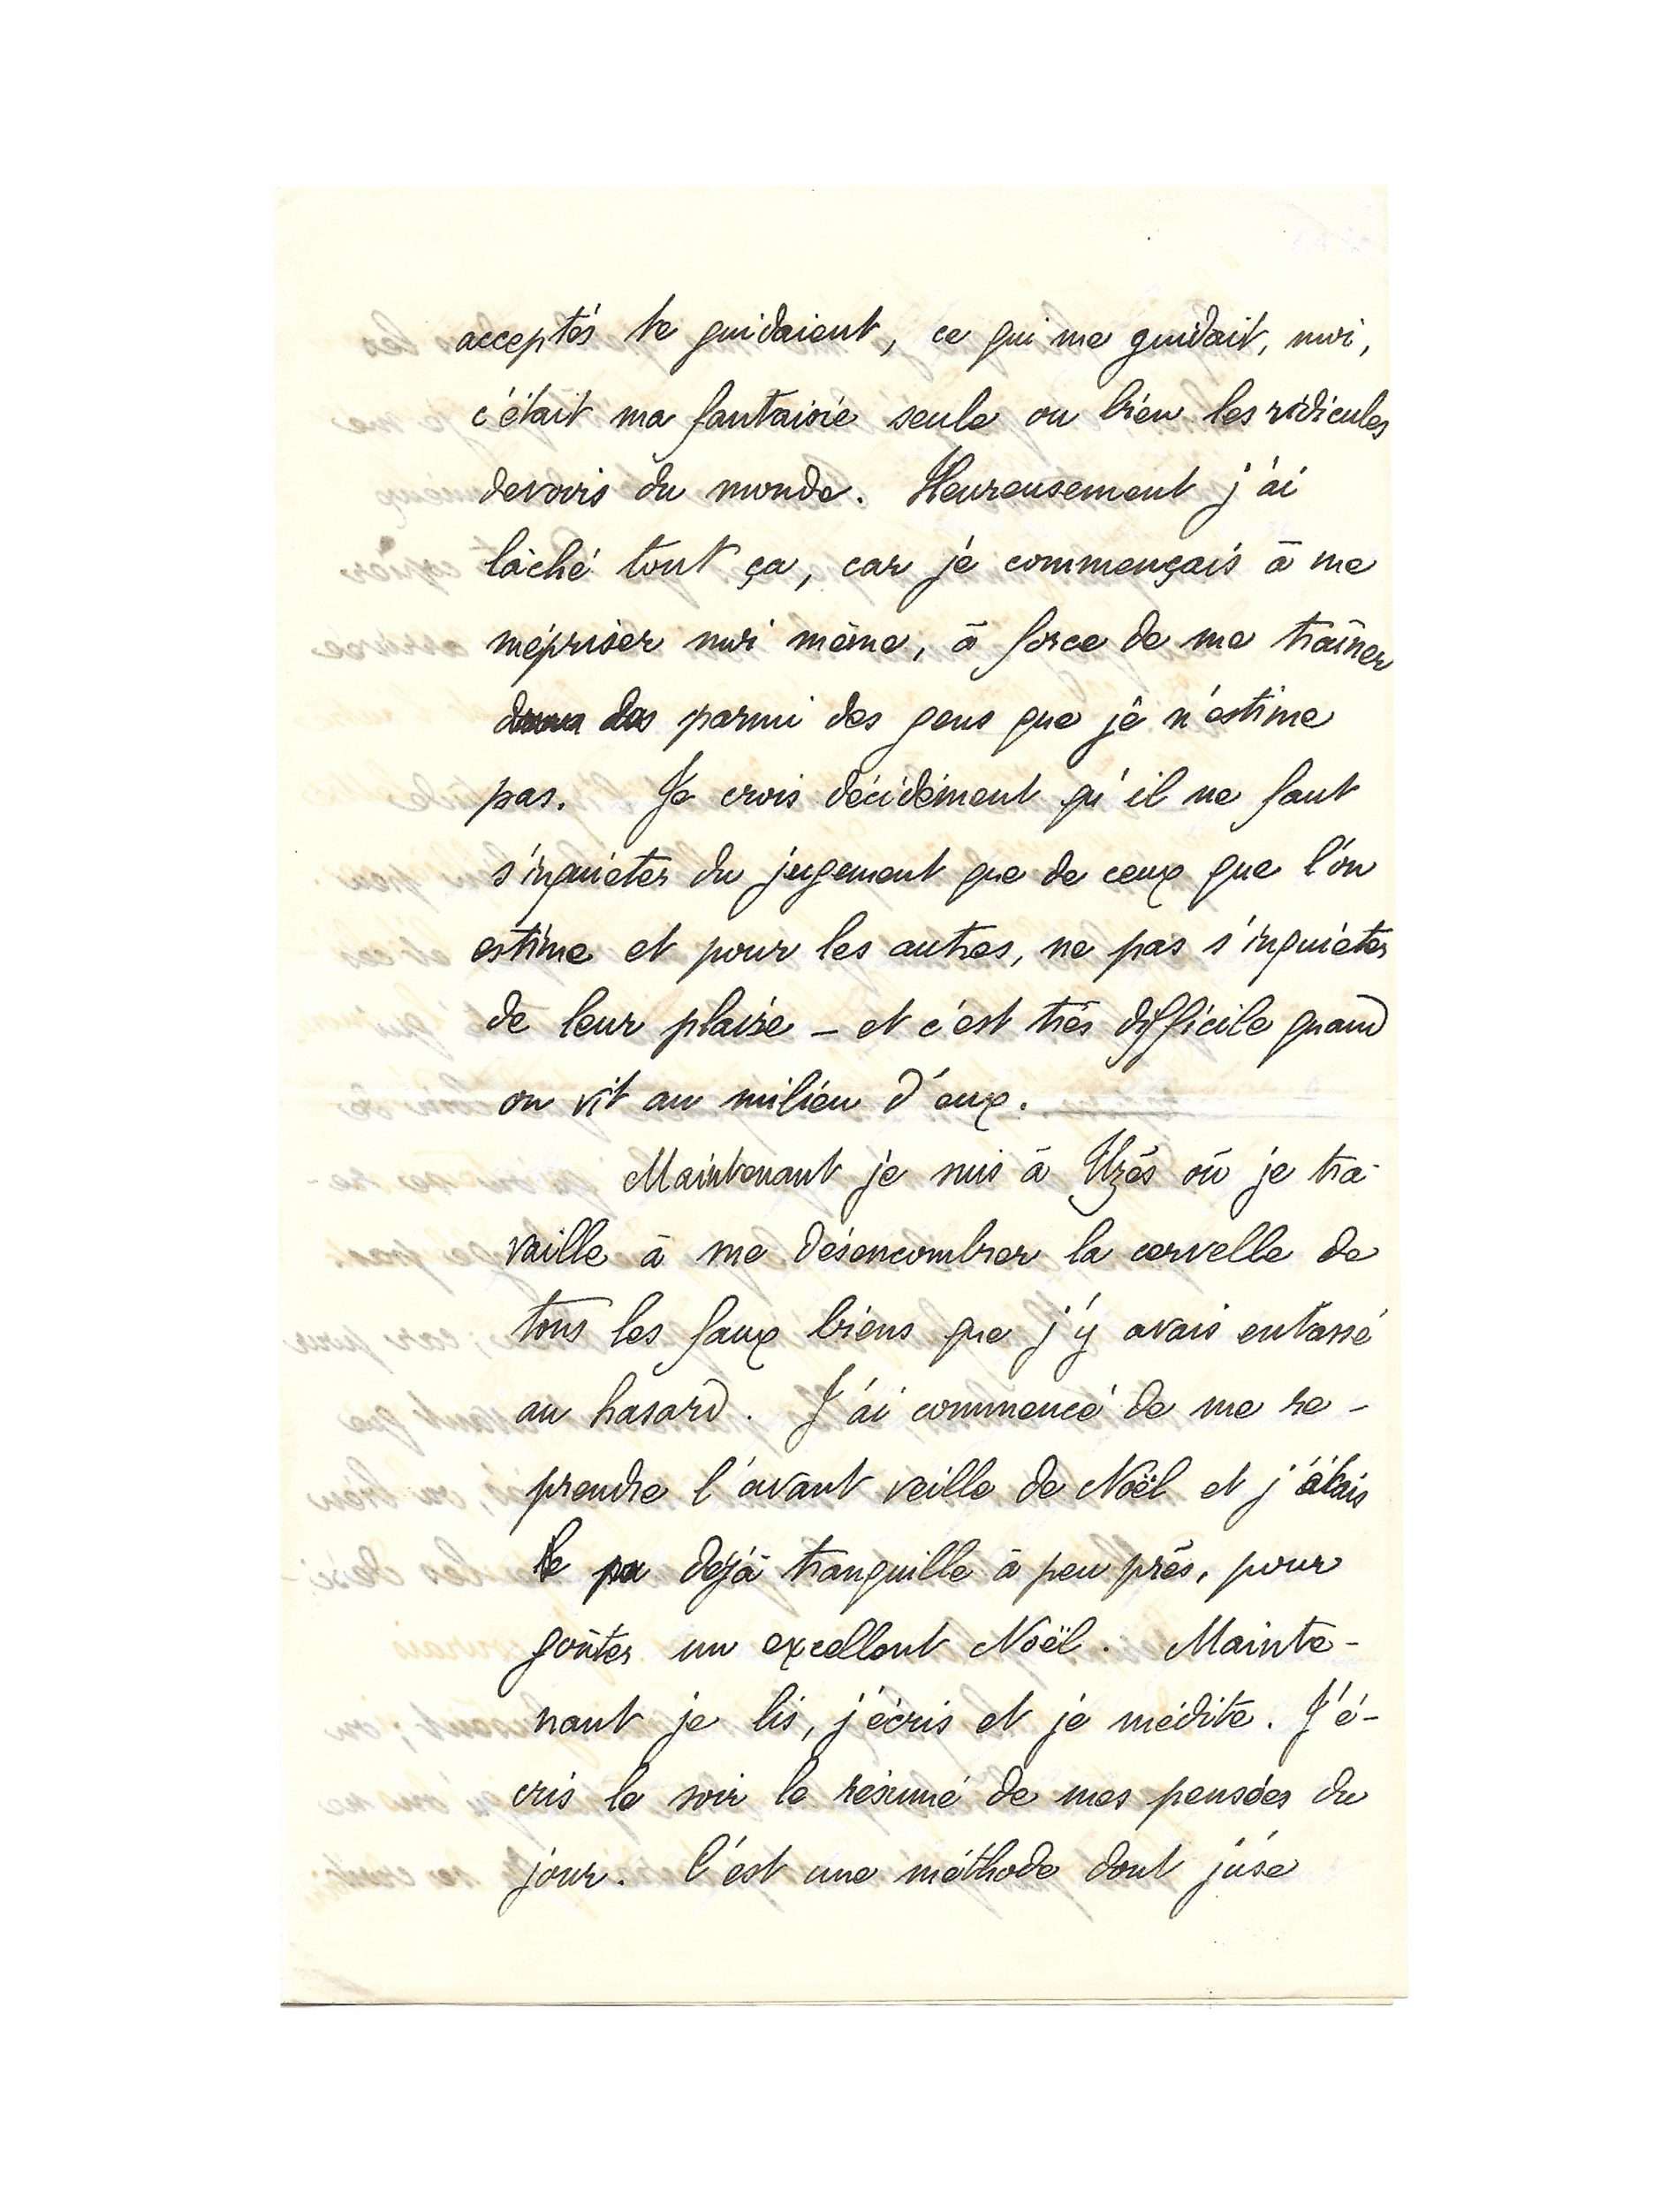 acceptés te guidaient, ce qui me guidait, moi,
c'était ma fantaisie seule ou bien les ridicules
devoirs du monde. Heureusement j'ai
lâché tout ça, car je commençais à me
mépriser moi même, à force de me traîner
dans des parmi des gens que je n'estime
pas. Je crois décidément qu'il ne faut
s'inquiéter du jugement que de ceux que l'on
estime et pour les autres, ne pas s'inquiéter
de leur plaire – et c'est très difficile quand
on vit au milieu d'eux.
Maintenant je suis à Uzès où je tra-
vaille à me désencombrer la cervelle de
tous les faux biens que j'y avais entassé
au hasard. J'ai commencé de me re-
prendre l'avant veille de Noël et j'étais
déjà tranquille à peu près, pour
goûter un excellent Noël. Mainte-
nant je lis, j'écris et je médite. J'é-
cris le soir le résumé de mes pensées du
jour. C'est une méthode dont j'use